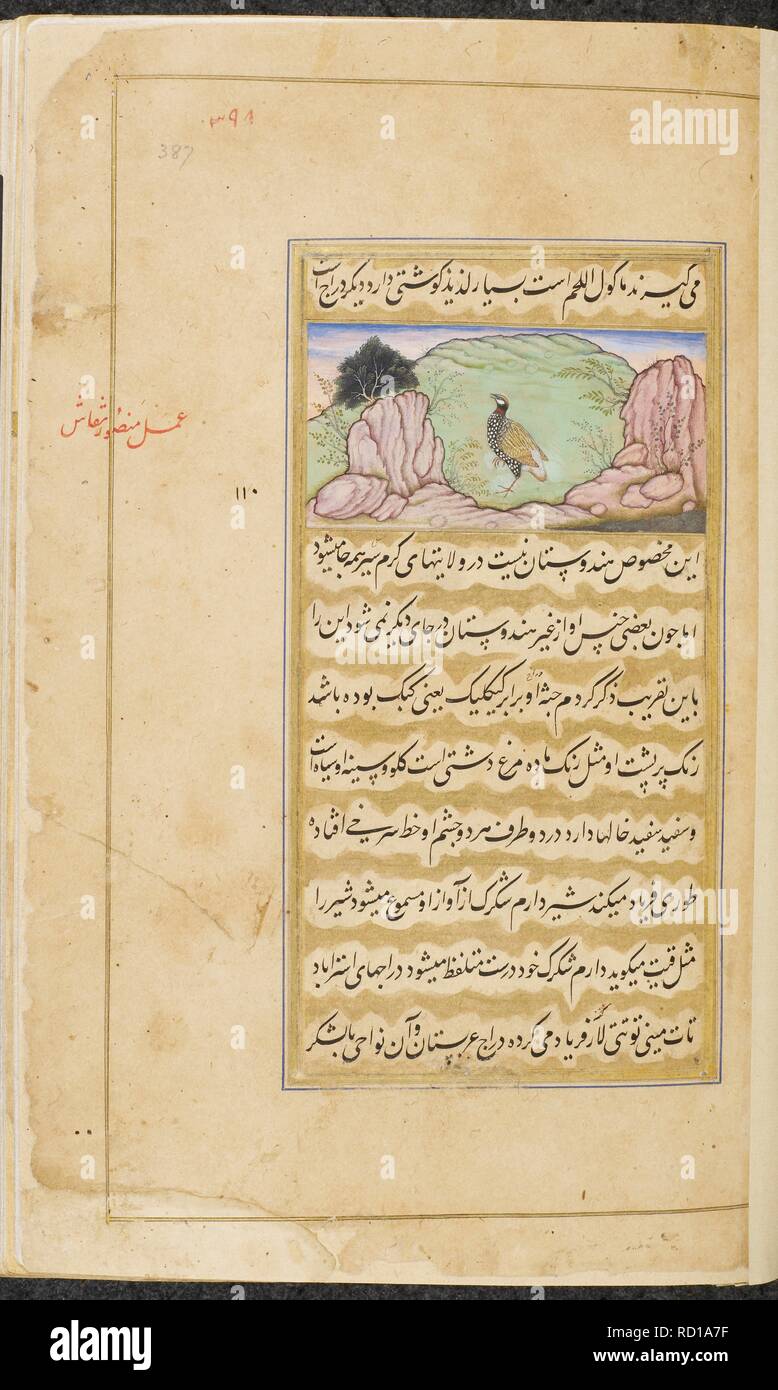 ۳۹۱
387
می‌گیرند ماکول اللحم است بسیار لذیذ گوشتی دارد دیگر دراج است
عمل منصور نقاش
۱۱۰
این مخصوص هندوستان نیست در ولایتهای گرم سیر همه جا میشود
اما چون بعضی جنس او از غیر هندوستان در جای دیگر نمی شود این را
باین تقریب ذکر کردم جثهٔ او برابر کیکلیک یعنی کبک بوده باشد
رنک پر پشت او مثل رنک ماده مرغ دشتی است کلو و سینه او سیاه است
و سفید سفید خالها دارد در دو طرف هر دو چشم او خط سرخی افتاده
طوری فریاد میکند شیر دارم شکرک از آواز او مسموع میشود شیر را
مثل قیت میگوید دارم شکرک خود درست متلفظ میشود دراجهای استراباد
تات مینی توتتی لار فریاد می کرده دراج عربستان و آن نواحی بالشکر
a alamy stock photo
alamy
Image ID: RD1A7F
www.alamy.com